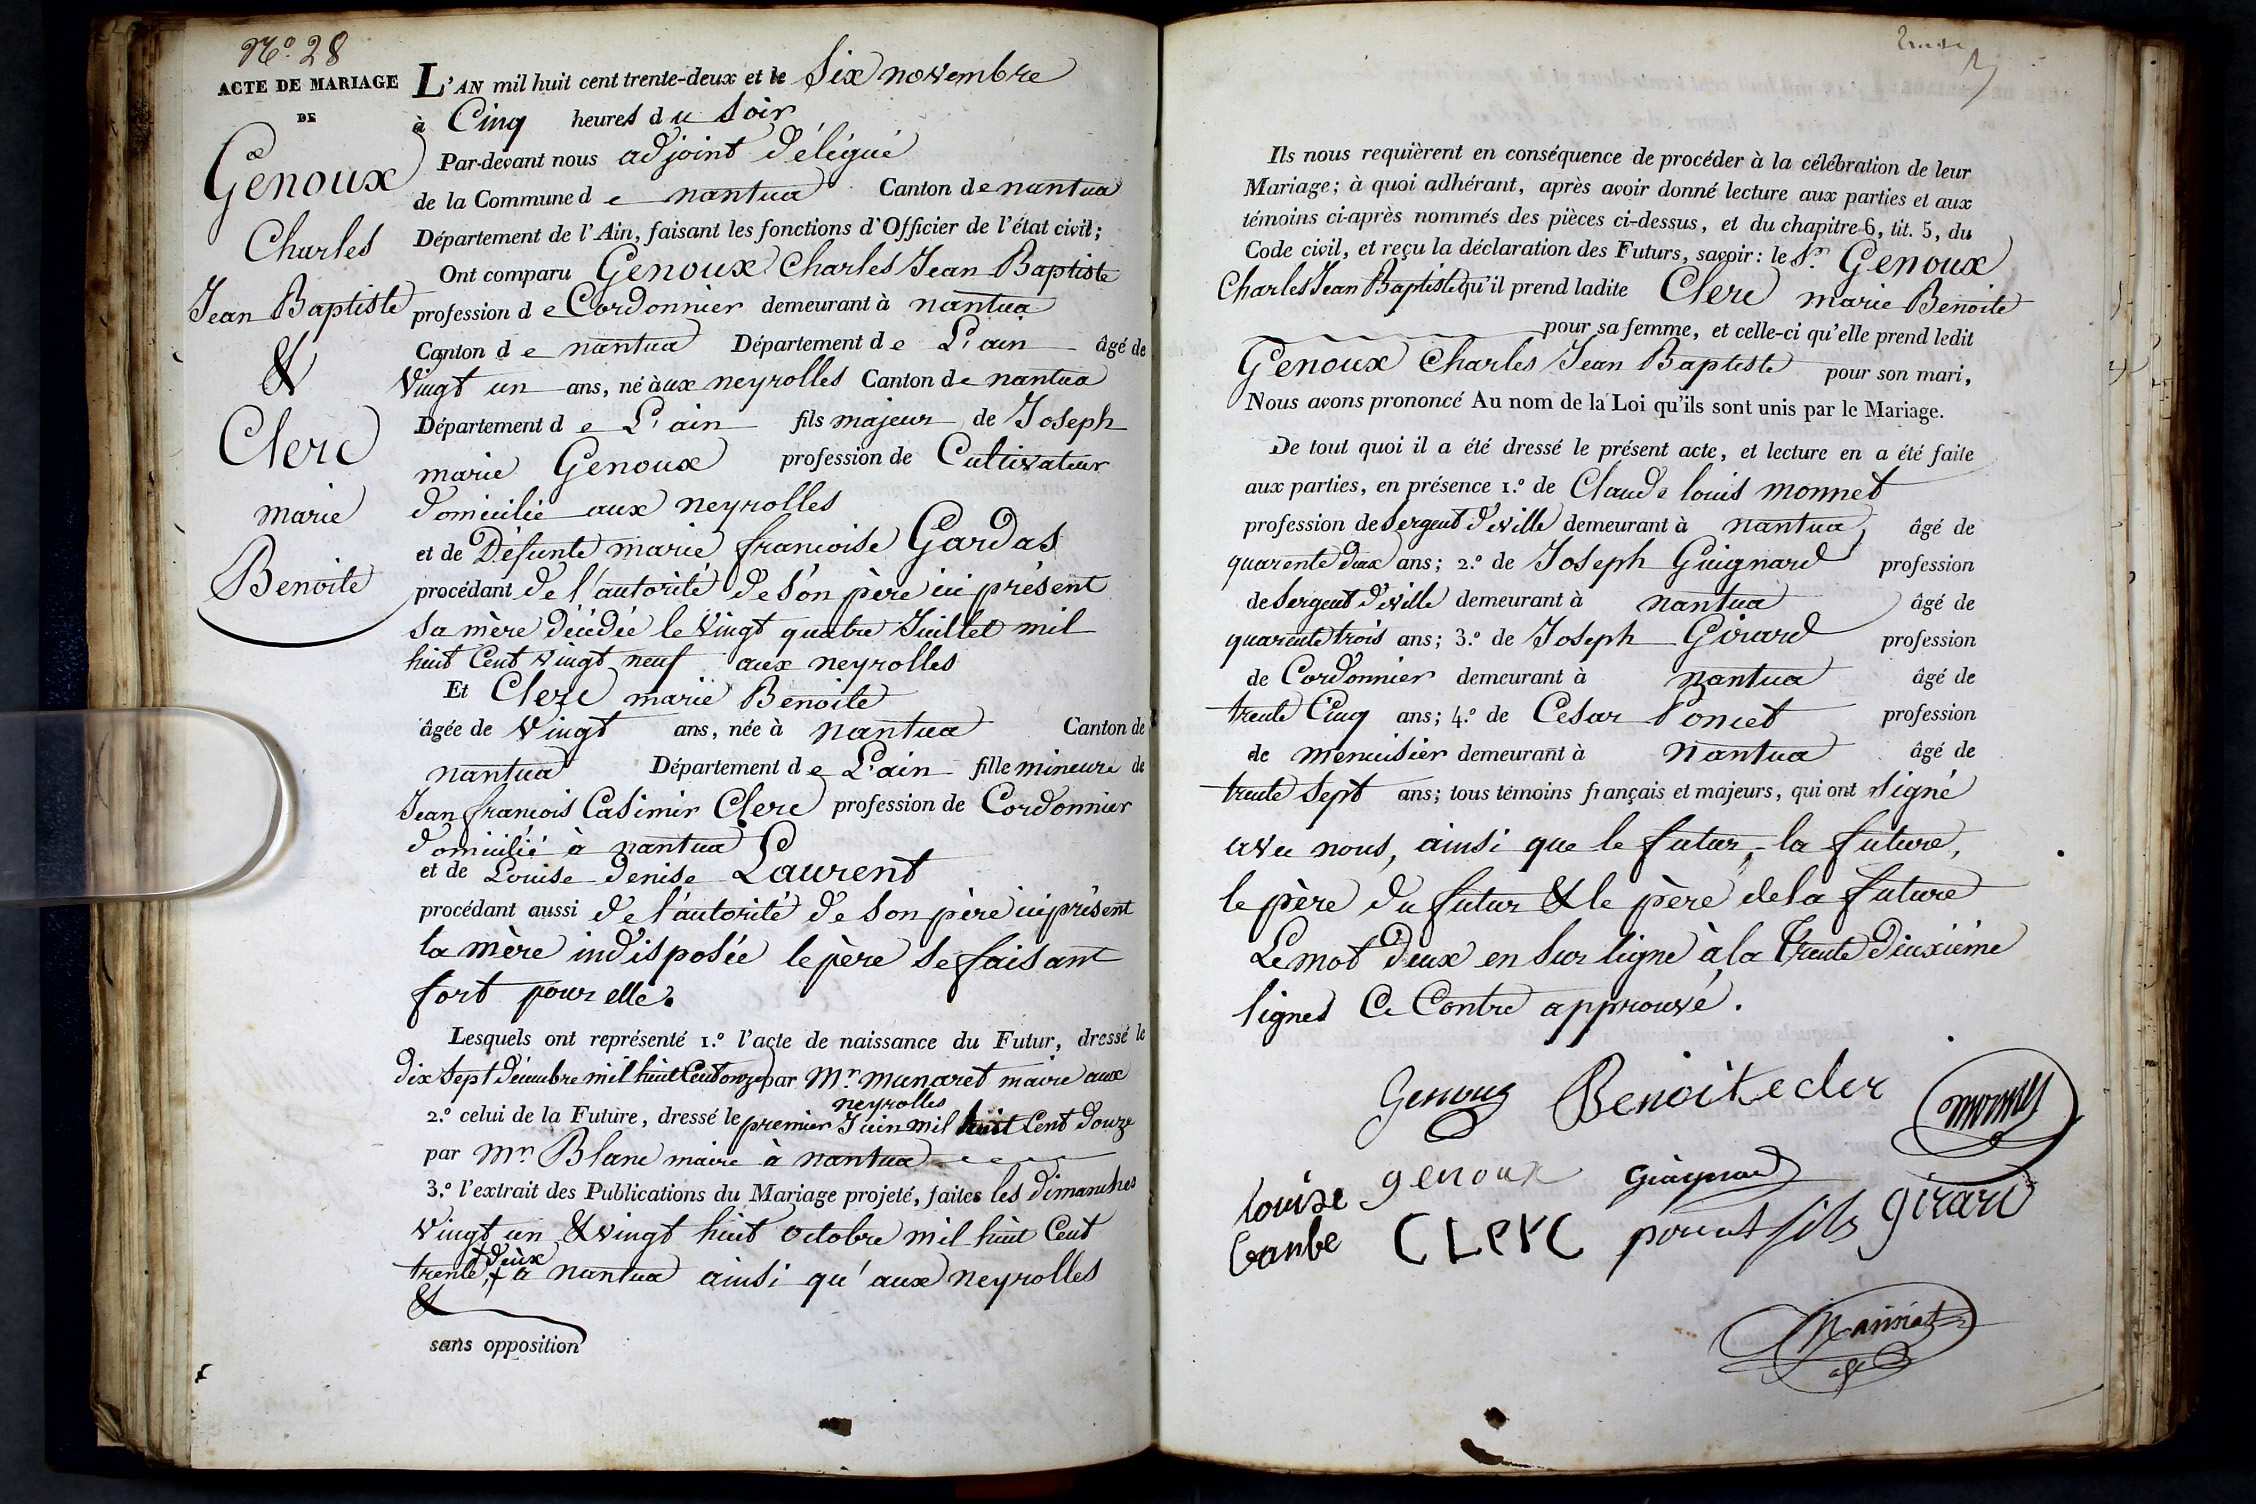 N.º 28
ACTE DE MARIAGE
DE
Genoux
Charles
Jean Baptiste
&
Clerc
marie
Benoite
L'AN mil huit cent trente-deux et le Six novembre
à Cinq heures du Soir
Par-devant nous adjoint délégué
de la Commune de nantua Canton de nantua
Département de l'Ain, faisant les fonctions d'Officier de l'état civil;
Ont comparu Genoux Charles Jean Baptiste
profession de Cordonnier demeurant à nantua
Canton de nantua Département de L'ain âgé de
Vingt un ans, né àux neyrolles Canton de nantua
Département de L'ain fils majeur de Joseph
marie Genoux profession de Cultivateur
domicilié aux neyrolles
et de Défunte marie francoise Gardas
procédant de l'autorité de Son père ici présent
Sa mère décédée le Vingt quatre Juillet mil
huit Cent vingt neuf aux neyrolles
Et Clerc marie Benoite
âgée de Vingt ans, née à nantua Canton de
nantua Département de L'ain fille mineure de
Jean francois Casimir Clerc profession de Cordonnier
domicilié à nantua
et de Louise denise Laurent
procédant aussi de l'autorité de Son père ici présent
la mère indisposée le père Se faisant
fort pour elle.
Lesquels ont représenté 1.º l'acte de naissance du Futur, dressé le
dix Sept décembre mil huit Cent onze par Mr munaret maire aux
neyrolles
2.º celui de la Future, dressé le premier Juin mil huit Cent douze
par Mr Blanc maire à nantua
3.º l'extrait des Publications du Mariage projeté, faites les dimanches
Vingt un & vingt huit Octobre mil huit Cent
deux
trente, à nantua ainsi qu'aux neyrolles
&
sans opposition
Ils nous requièrent en conséquence de procéder à la célébration de leur
Mariage; à quoi adhérant, après avoir donné lecture aux parties et aux
témoins ci-après nommés des pièces ci-dessus, et du chapitre 6, tit. 5, du
Code civil, et reçu la déclaration des Futurs, savoir: le Sr. Genoux
Charles Jean Baptiste qu'il prend ladite Clerc marie Benoite
pour sa femme, et celle-ci qu'elle prend ledit
Genoux Charles Jean Baptiste pour son mari,
Nous avons prononcé Au nom de la Loi qu'ils sont unis par le Mariage.
De tout quoi il a été dressé le présent acte, et lecture en a été faite
aux parties, en présence 1.º de Claude louis monnet
profession de Sergent de ville demeurant à nantua âgé de
quarente deux ans; 2.º de Joseph Guignard profession
de Sergent de ville demeurant à nantua âgé de
quarente trois ans; 3.º de Joseph Girard profession
de Cordonnier demeurant à nantua âgé de
trente Cinq ans; 4.º de Cesar Poncet profession
de menuisier demeurant à nantua âgé de
trente Sept ans; tous témoins français et majeurs, qui ont signé
avec nous, ainsi que le futur, la future,
le père du futur & le père de la future
Le mot deux en Sur ligne à la trente deuxième
lignes Ce Contre approuvé.
Genoux Benoite cler monnet
Louise genoux Guignard
CLerC poncet fils girard